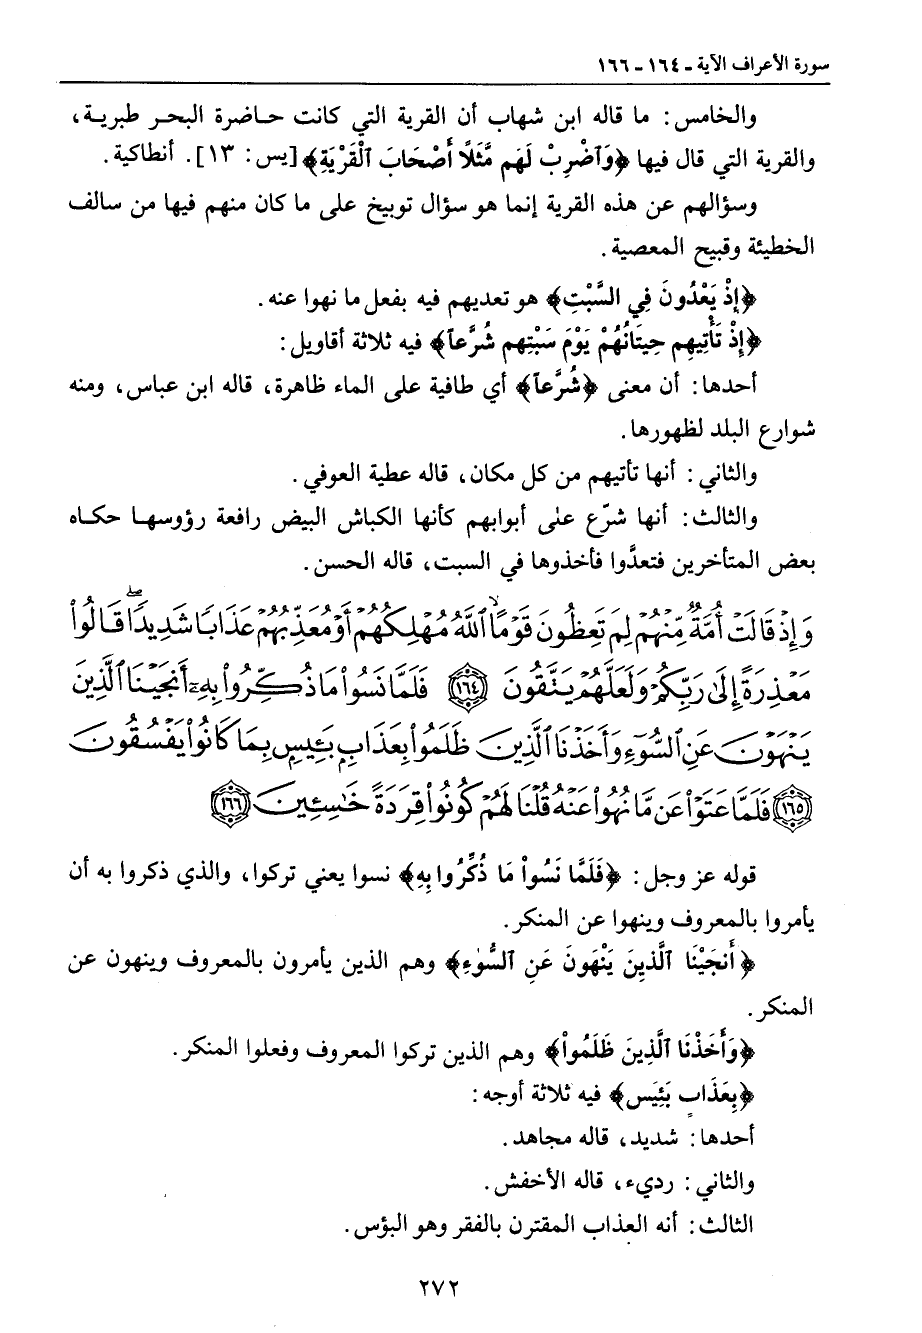 سورة الأعراف الآية ـ ١٦٤ - ١٦٦
والخامس: ما قاله ابن شهاب أن القرية التي كانت حاضرة البحر طبرية،
والقرية التي قال فيها ﴿وَٱضْرِبْ لَهُم مَّثَلًا أَصْحَابَ ٱلْقَرْيَةِ﴾ [يس: ١٣]. أنطاكية.
وسؤالهم عن هذه القرية إنما هو سؤال توبيخ على ما كان منهم فيها من سالف
الخطيئة وقبيح المعصية.
﴿إِذْ يَعْدُونَ فِي السَّبْتِ﴾ هو تعديهم فيه بفعل ما نهوا عنه.
﴿إِذْ تَأْتِيهِم حِيتَانُهُمْ يَوْمَ سَبْتِهِم شُرَّعاً﴾ فيه ثلاثة أقاويل:
أحدها: أن معنى ﴿شُرَّعاً﴾ أي طافية على الماء ظاهرة، قاله ابن عباس، ومنه
شوارع البلد لظهورها.
والثاني: أنها تأتيهم من كل مكان، قاله عطية العوفي.
والثالث: أنها شرّع على أبوابهم كأنها الكباش البيض رافعة رؤوسها حكاه
بعض المتأخرين فتعدَّوا فأخذوها في السبت، قاله الحسن.
وَإِذْ قَالَتْ أُمَّةٌ مِّنْهُمْ لِمَ تَعِظُونَ قَوْمًا ٱللَّهُ مُهْلِكُهُمْ أَوْ مُعَذِّبُهُمْ عَذَابًا شَدِيدًا ۖ قَالُوا۟
مَعْذِرَةً إِلَىٰ رَبِّكُمْ وَلَعَلَّهُمْ يَتَّقُونَ ﴿١٦٤﴾ فَلَمَّا نَسُوا۟ مَا ذُكِّرُوا۟ بِهِۦٓ أَنجَيْنَا ٱلَّذِينَ
يَنْهَوْنَ عَنِ ٱلسُّوٓءِ وَأَخَذْنَا ٱلَّذِينَ ظَلَمُوا۟ بِعَذَابٍۭ بَـِٔيسٍۭ بِمَا كَانُوا۟ يَفْسُقُونَ
﴿١٦٥﴾ فَلَمَّا عَتَوْا۟ عَن مَّا نُهُوا۟ عَنْهُ قُلْنَا لَهُمْ كُونُوا۟ قِرَدَةً خَـٰسِـِٔينَ ﴿١٦٦﴾
قوله عز وجل: ﴿فَلَمَّا نَسُوا۟ مَا ذُكِّرُوا بِهِ﴾ نسوا يعني تركوا، والذي ذكروا به أن
يأمروا بالمعروف وينهوا عن المنكر.
﴿أَنجَيْنَا ٱلَّذِينَ يَنْهَونَ عَنِ ٱلسُّوٰءِ﴾ وهم الذين يأمرون بالمعروف وينهون عن
المنكر.
﴿وَأَخَذْنَا ٱلَّذِينَ ظَلَمُوا۟﴾ وهم الذين تركوا المعروف وفعلوا المنكر.
﴿بِعَذَابٍ بَئِيَسٍ﴾ فيه ثلاثة أوجه:
أحدها: شديد، قاله مجاهد.
والثاني: رديء، قاله الأخفش.
الثالث: أنه العذاب المقترن بالفقر وهو البؤس.
٢٧٢